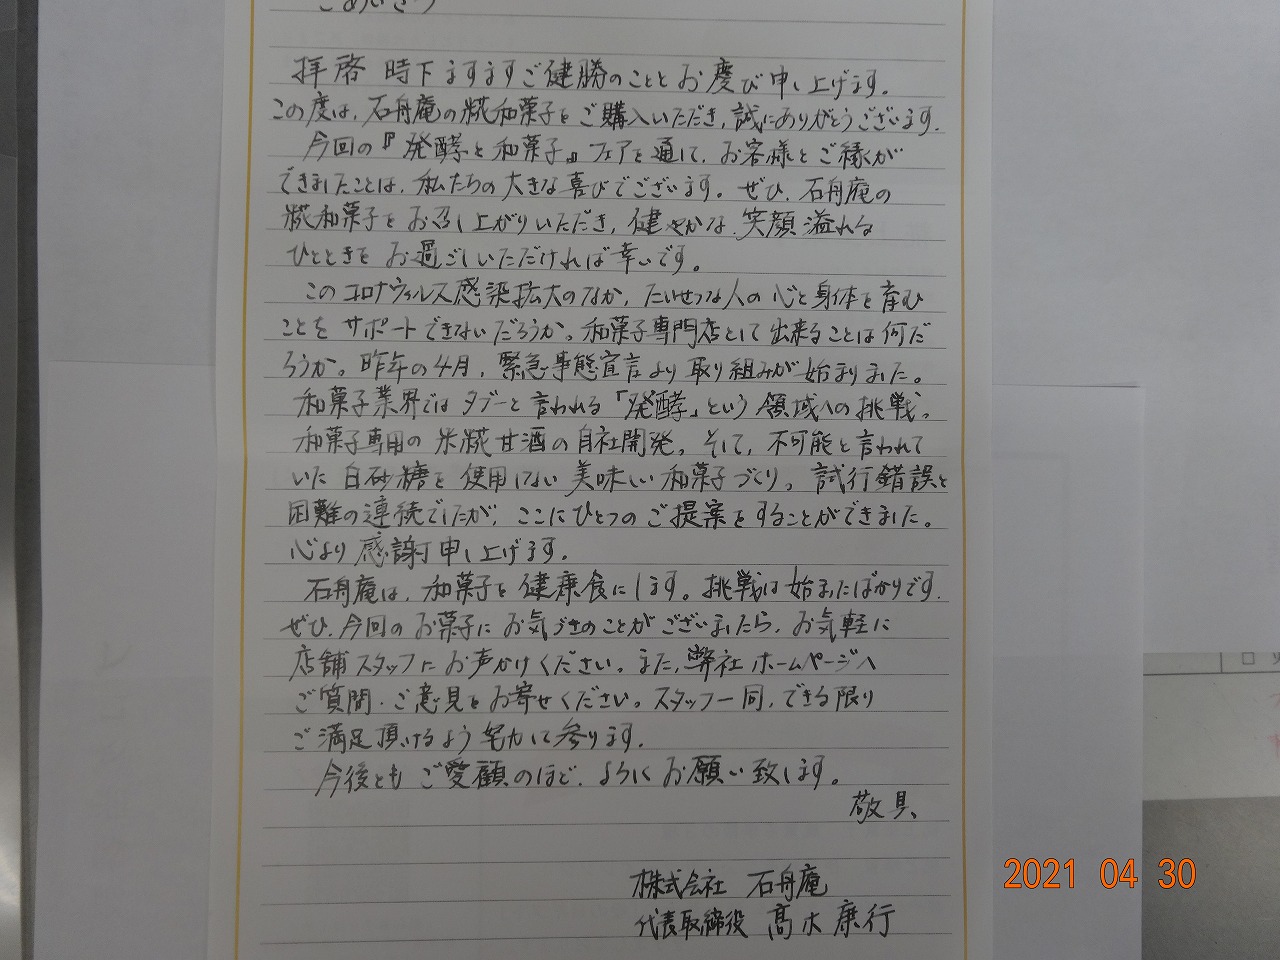 ごあいさつ
拝啓 時下ますますご健勝のこととお慶び申し上げます。
この度は、石舟庵の糀和菓子をご購入いただき、誠にありがとうございます。
今回の『発酵と和菓子』フェアを通して、お客様とご縁が
できましたことは、私たちの大きな喜びでございます。ぜひ、石舟庵の
糀和菓子をお召し上がりいただき、健やかな、笑顔溢れる
ひとときをお過ごしいただければ幸いです。
このコロナウィルス感染拡大のなか、たいせつな人の心と身体を育む
ことをサポートできないだろうか。和菓子専門店として出来ることは何だ
ろうか。昨年の4月、緊急事態宣言より取り組みが始まりました。
和菓子業界ではタブーと言われる「発酵」という領域への挑戦。
和菓子専用の米糀甘酒の自社開発。そして、不可能と言われて
いた白砂糖を使用しない美味しい和菓子づくり。試行錯誤と
困難の連続でしたが、ここにひとつのご提案をすることができました。
心より感謝申し上げます。
石舟庵は、和菓子を健康食にします。挑戦は始まったばかりです。
ぜひ、今回のお菓子にお気づきのことがございましたら、お気軽に
店舗スタッフにお声かけください。また、弊社ホームページへ
ご質問・ご意見をお寄せください。スタッフ一同、できる限り
ご満足頂けるよう努力して参ります。
今後ともご愛顧のほど、よろしくお願い致します。
敬具、
株式会社 石舟庵
代表取締役 高木康行
2021 04 30